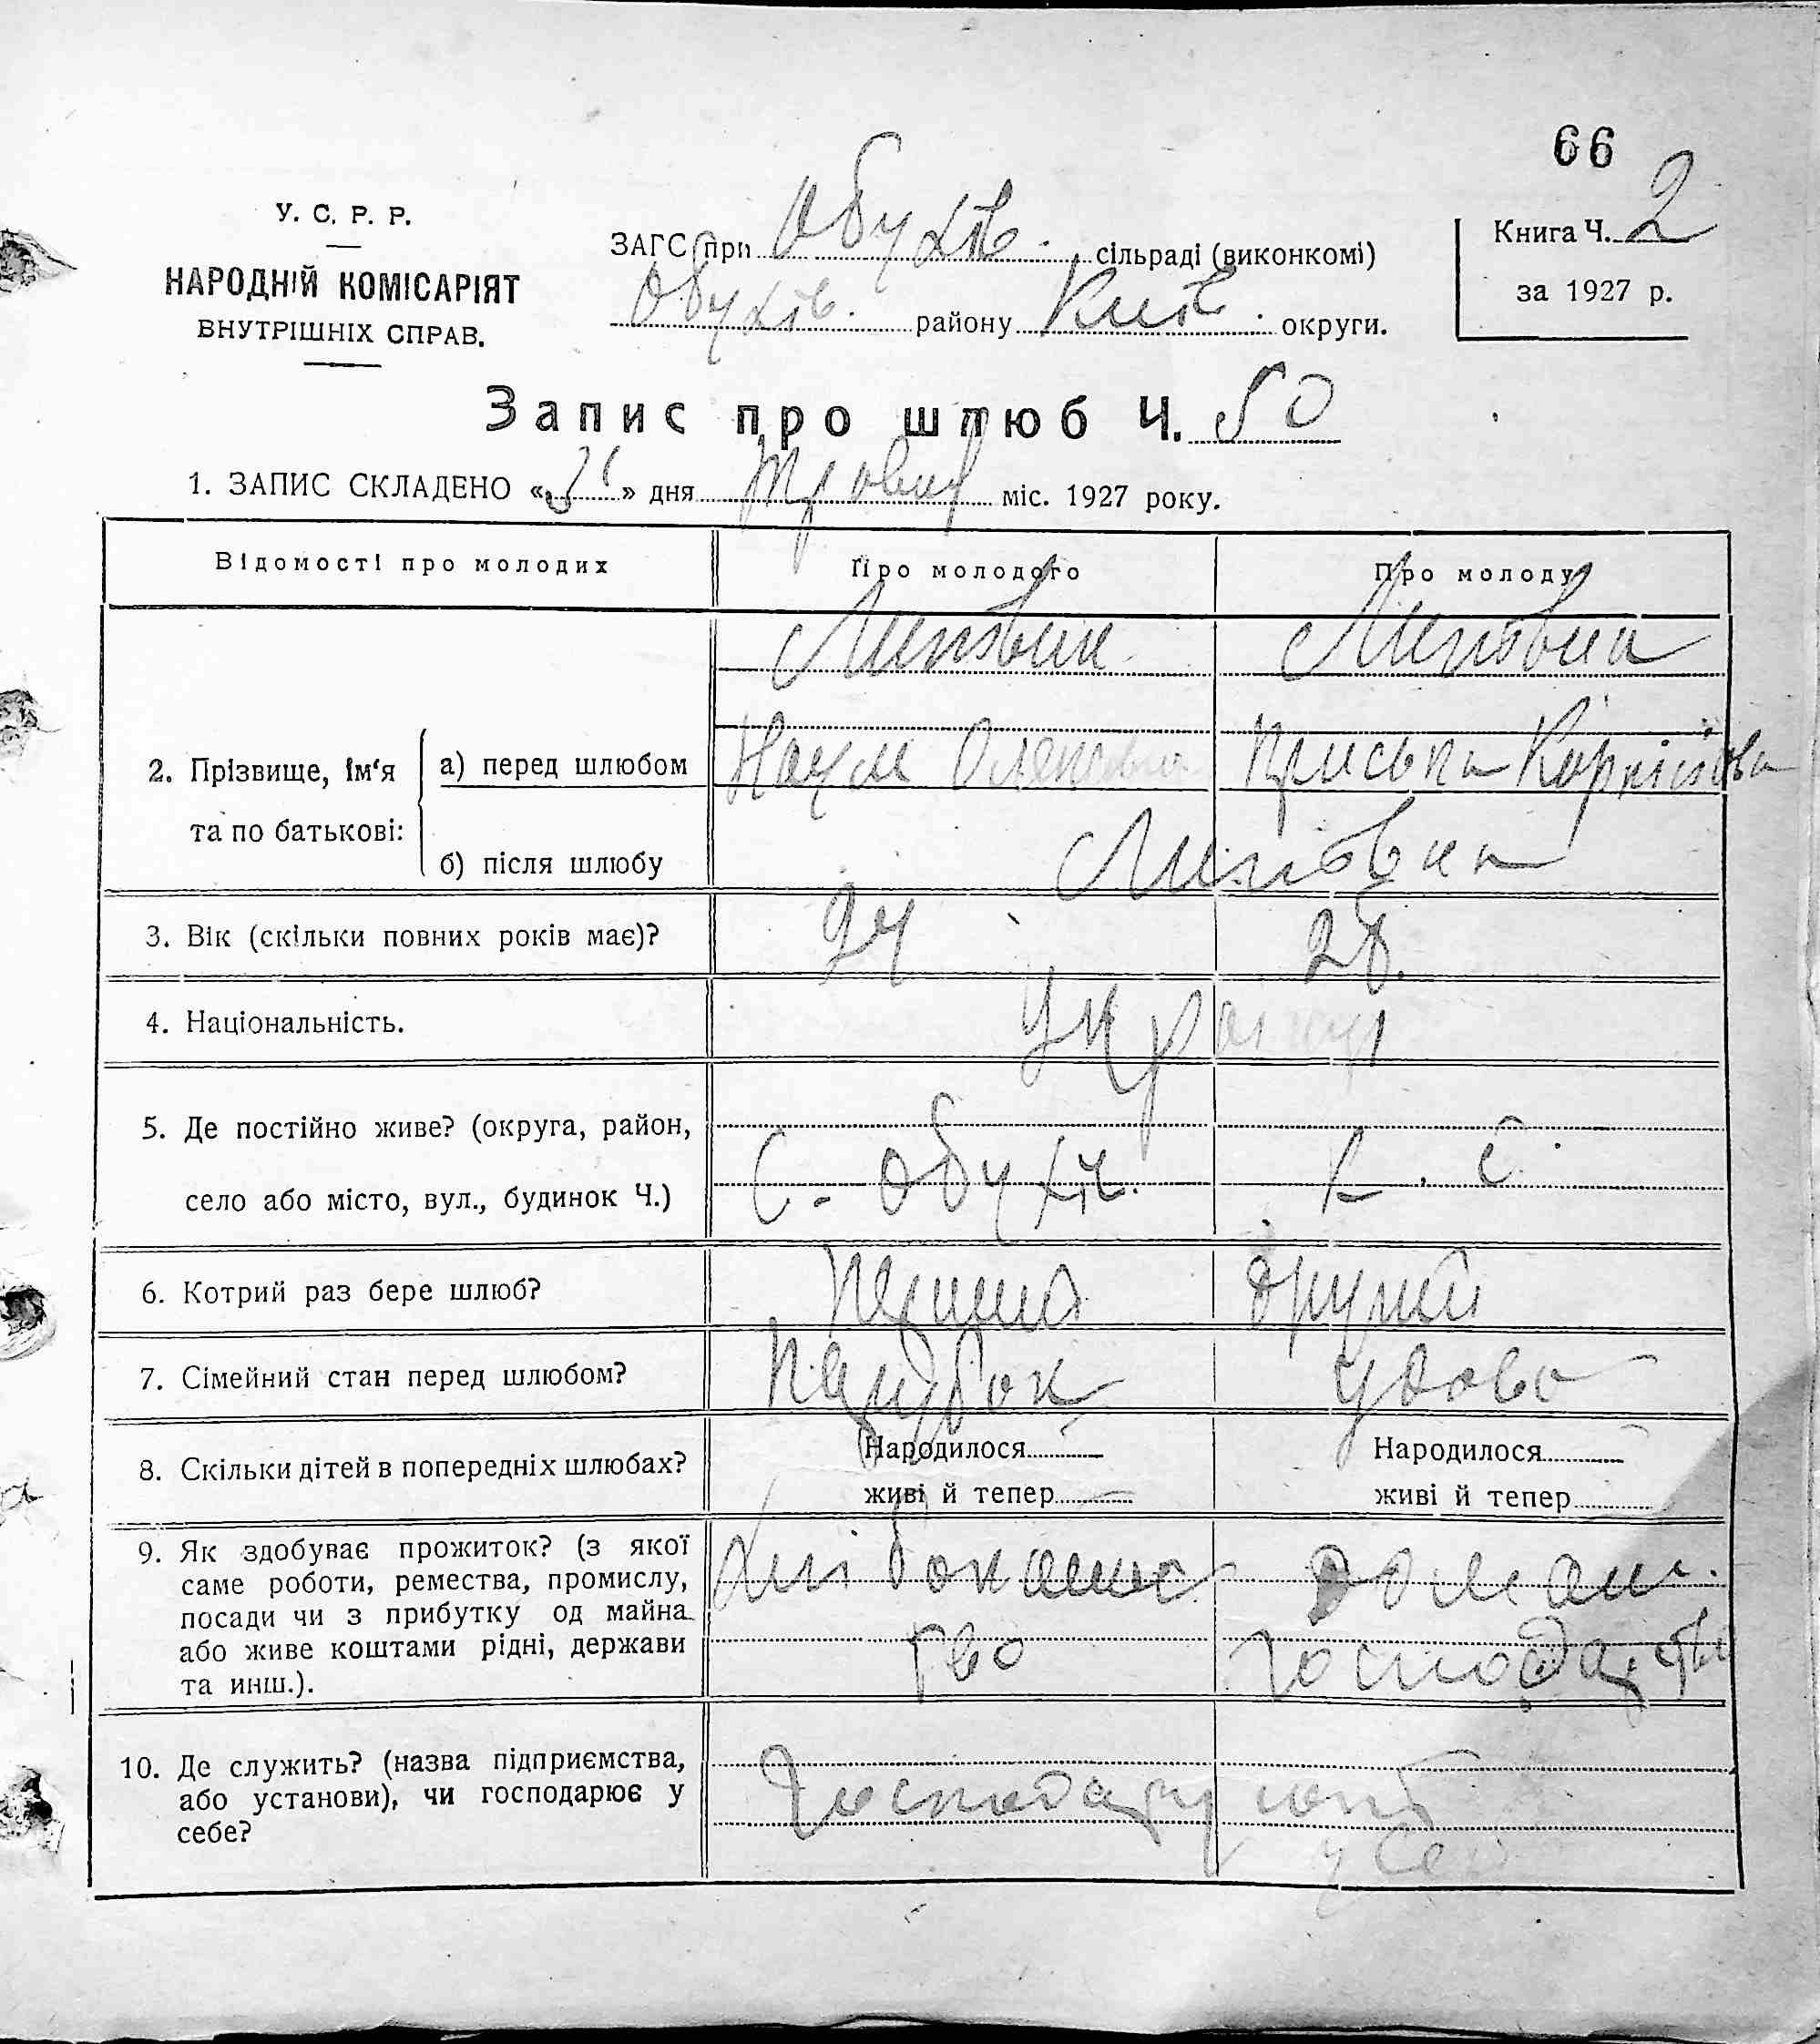 66
У. С. Р. Р.
НАРОДНІЙ КОМІСАРІЯТ
ВНУТРІШНІХ СПРАВ.
ЗАГС при Обухів. сільраді (виконкомі)
Обухів. району Київ. округи.
Книга Ч. 2
за 1927 р.
Запис про шлюб Ч. 50
1. ЗАПИС СКЛАДЕНО « » дня Травня міс. 1927 року.
Відомості про молодих Про молодого Про молоду
2. Прізвище, ім'я та по батькові:
а) перед шлюбом
Литвин Литвина
Наум Приська
б) після шлюбу
Литвин
3. Вік (скільки повних років має)? 24 28.
4. Національність. Україн
5. Де постійно живе? (округа, район,
село або місто, вул., будинок Ч.) С. Обухів.
6. Котрий раз бере шлюб? перший другий
7. Сімейний стан перед шлюбом? Парубок удова
8. Скільки дітей в попередніх шлюбах? Народилося Народилося
живі й тепер живі й тепер
9. Як здобуває прожиток? (з якої
саме роботи, ремества, промислу,
посади чи з прибутку од майна
або живе коштами рідні, держави
та инш.).
Хлібопашес
тво
Домаш.
господарств
10. Де служить? (назва підприємства,
або установи), чи господарює у
себе?
Господарюють
у себе